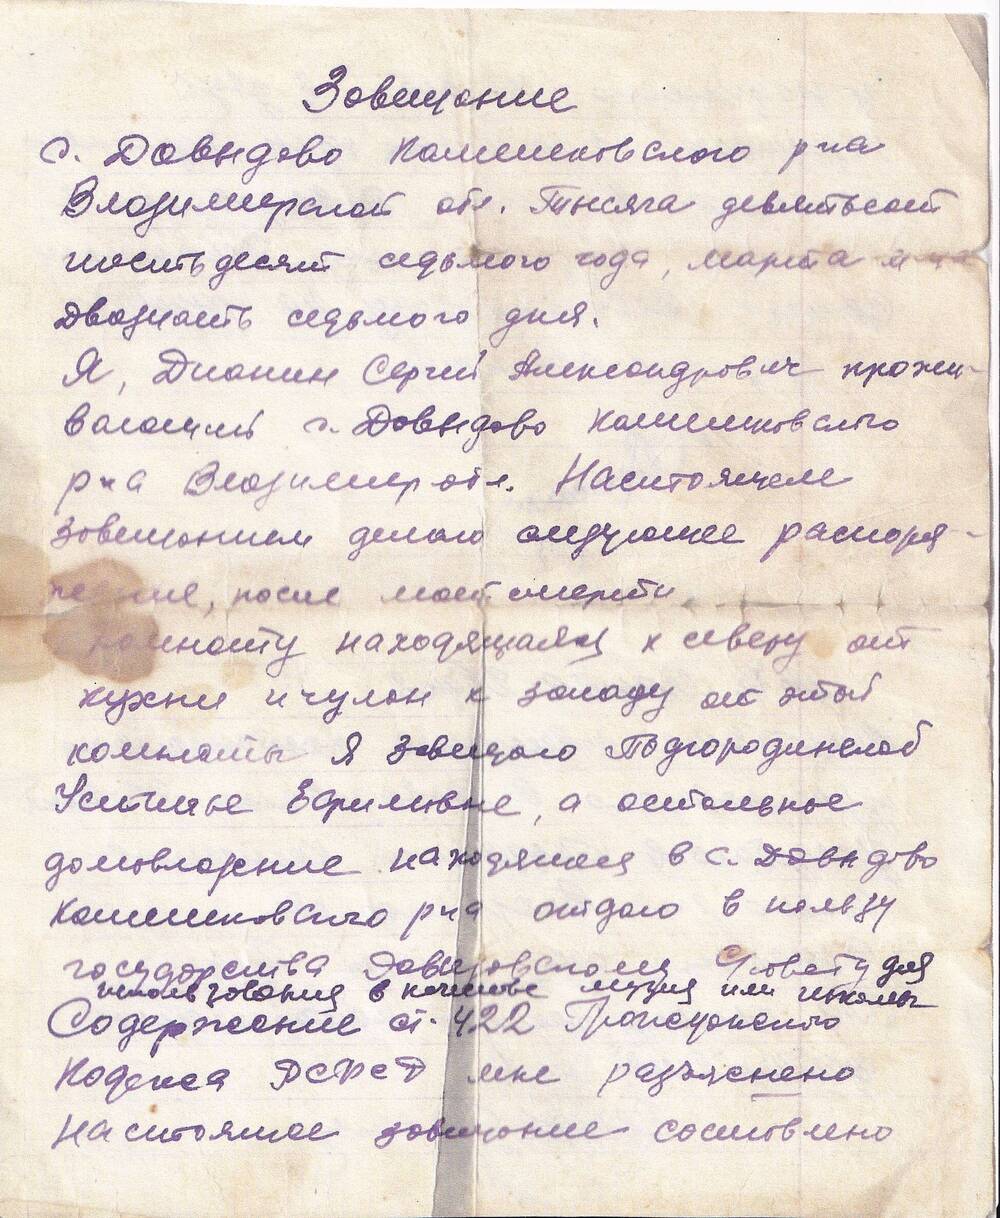 Зовещоние
с. Довыдово Камешковского р-на
Владимирской обл. Тысяча девятьсот
шестьдесят седьмого года, марта м-ца
Двазцать седьмого дня.
Я, Дианин Сергей Александрович прожи-
вающий с. Довыдово Камешковского
р-на Владимир обл. Настоящем
зовещонием делаю следующее распоря-
жение, после моей смерти
Комнату находящаяся к северу от
кухни и чулан к западу от этой
комнаты я завещаю Подгородинской
Устинье Ефимовне, а остальное
домовладение находящееся в с. Довыдово
Камешковского р-на отдаю в пользу
государства Давыдовскому Совету для
использования в качестве музея или школы
Содержание ст. 422 Гражданского
Кодекса РСФСР мне разъяснено
Настоящее зовещоние составлено